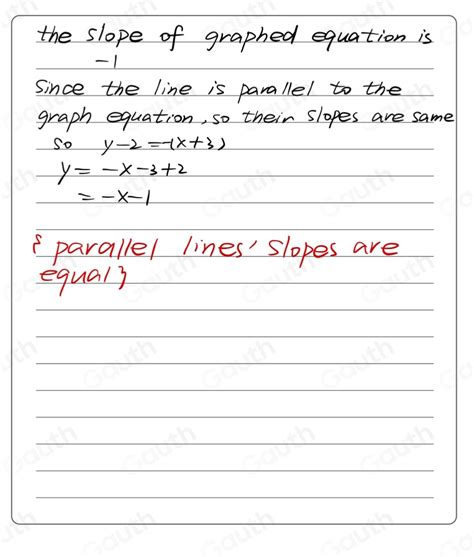 the slope of graphed equation is
-1
Since the line is parallel to the
graph equation, so their slopes are same
so y-2=-(x+3)
y= -x-3+2
= -x-1
{ parallel lines' slopes are
equal}
Gauth